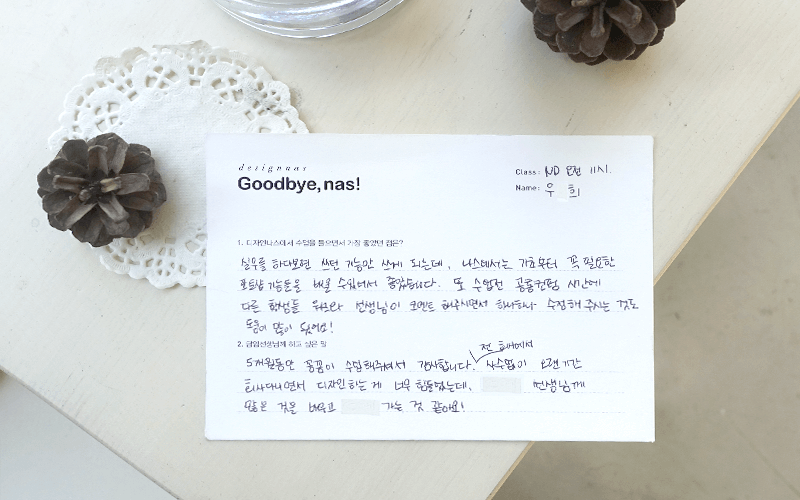 designnas
Goodbye, nas!
Class: ND 오전 11시.
Name: 우 희
1. 디자인나스에서 수업을 들으면서 가장 좋았던 점은?
실무를 하다보면 쓰던 기능만 쓰게 되는데, 나스에서는 기초부터 꼭 필요한
포토샵 기능들을 배울 수 있어서 좋았습니다. 또 수업전 공통컨펌 시간에
다른 학생들 워크와 선생님이 코멘트 해주시면서 하나하나 수정해 주시는 것도
도움이 많이 됐어요!
2. 담임선생님께 하고 싶은 말
전 회사에서
5개월동안 꼼꼼히 수업해주셔서 감사합니다. 사수없이 오랜기간
회사다니면서 디자인하는 게 너무 힘들었는데, 선생님께
많은 것을 배우고 가는 것 같아요!